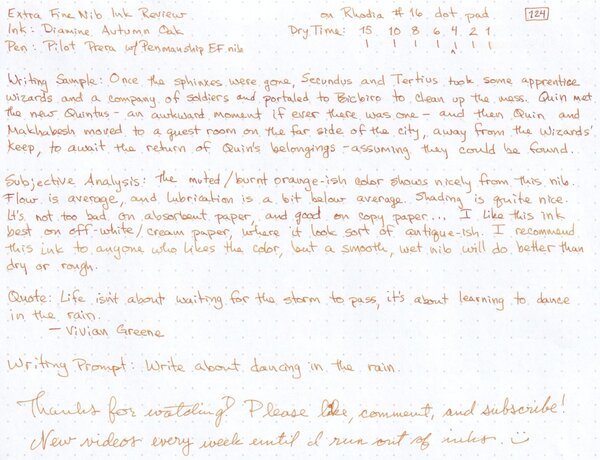 Extra Fine Nib Ink Review on Rhodia #16 dot pad 124
Ink: Diamine Autumn Oak Dry Time: 15 10 8 6 4 2 1
Pen: Pilot Prera w/Penmanship EF nib
Writing Sample: Once the sphinxes were gone, Secundus and Tertius took some apprentice
wizards and a company of soldiers and portaled to Bicbiro to clean up the mess. Quin met
the new Quintus - an awkward moment if ever there was one - and then Quin and
Makhabesh moved to a guest room on the far side of the city, away from the Wizards'
Keep, to await the return of Quin's belongings - assuming they could be found..
Subjective Analysis: The muted/burnt orange-ish color shows nicely from this nib.
Flow is average, and lubrication is a bit below average. Shading is quite nice.
It's not too bad on absorbent paper, and good on copy paper... I like this ink
best on off-white/cream paper, where it look sort of antique-ish. I recommend
this ink to anyone who likes the color, but a smooth, wet nib will do better than
dry or rough.
Quote: Life isn't about waiting for the storm to pass, it's about learning to dance
in the rain.
- Vivian Greene
Writing Prompt: Write about dancing in the rain.
Thanks for watching! Please like, comment, and subscribe!
New videos every week until I run out of inks. :)